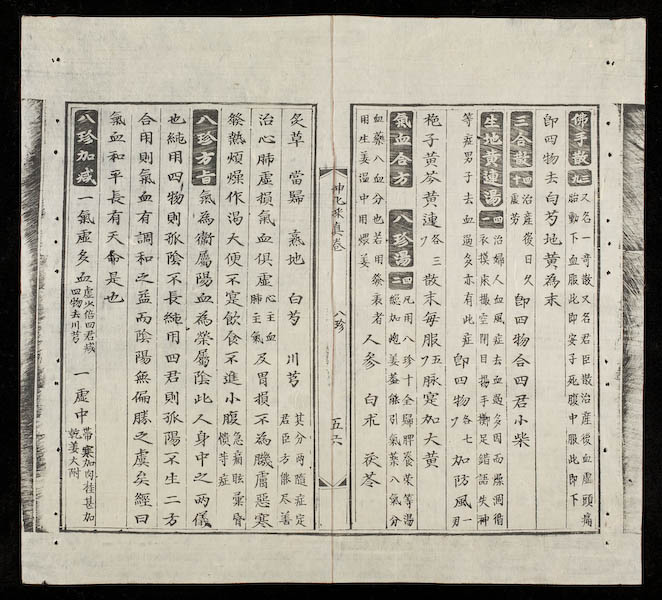 佛手散 三九 又名一奇散又名君臣散治產後血虛頭痛
胎動下血服此即安子死腹中服此即下
即四物去白芍地黃為末
三合散 四十 治產後日久虛劳 即四物合四君小柴
生地黃連湯 四一 治婦人血風症去血過多因而燥涸循
衣摸床撮空閉目揚手擲足錯語失神
等症男子去血過多亦有此症 即四物各七 加防風一刃
梔子黃芩黃連各三 散末每服五 脉寔加大黃
氣血合方 八珍湯 四二 凡用八珍十全歸脾養荣等湯
經加炮姜蓋能引氣藥入氣分
血藥入血分也若用發表者
用生姜溫中用煨姜 人參 白朮 茯苓
八珍 五六
炙草 當歸 熟地 白芍 川芎 其分两隨症定
君臣方能尽善
治心肺虛損氣血俱虛 心主血肺主氣 及胃損不為飢膚惡寒
發熱煩燥作渴大便不寔飲食不進小腹 急痛眩暈昏憒等症
八珍方旨 氣為衛屬陽血為榮屬陰此人身中之两儀
也純用四物則孤陰不長純用四君則孤陽不生二方
合用則氣血有調和之益而陰陽無偏勝之虞矣經曰
氣血和平長有天命是也
八珍加减 一氣虛多血虛少倍四君减四物去川芎 一虛中帶寒加肉桂甚加乾姜大附